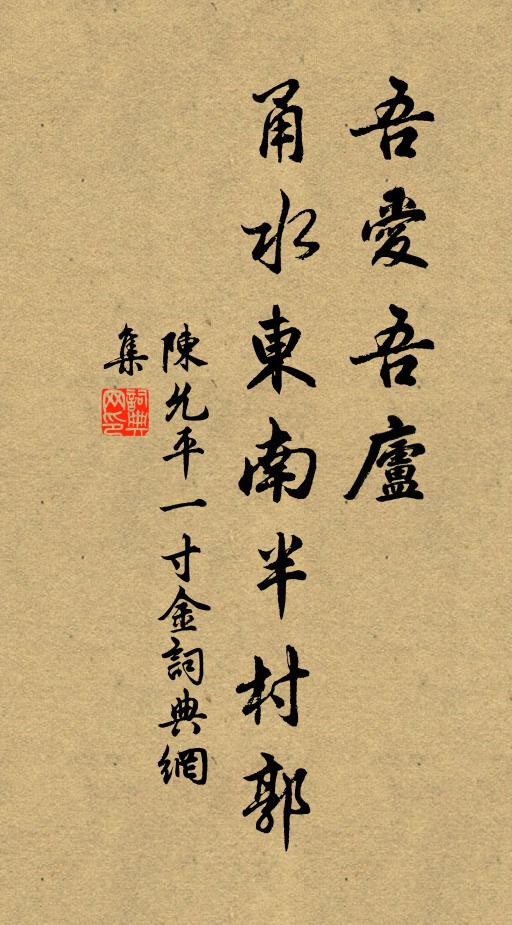 吾愛吾廬
甬水東南半村郭
陳允平一寸金詞典網
集
詞典網印